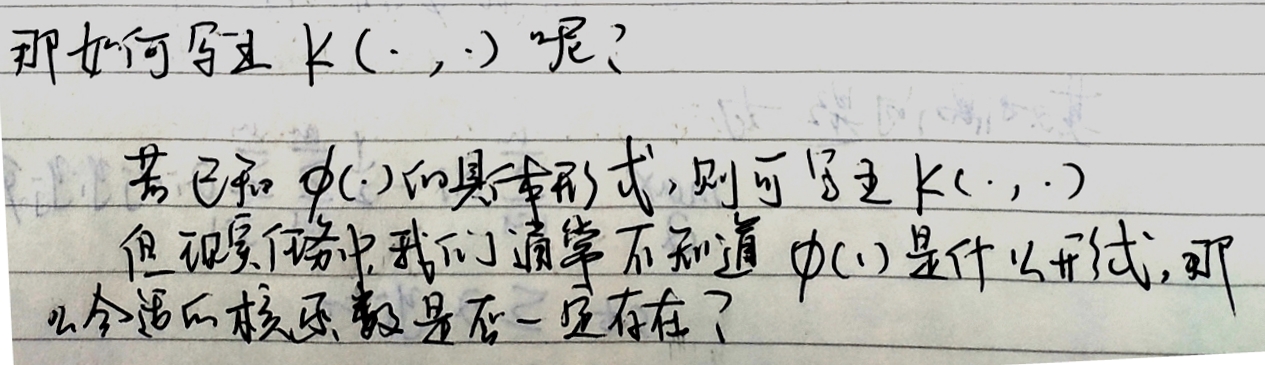 那如何写出 K(·,·) 呢?
若已知 φ(·)的具体形式,则可写出 K(·,·)
但现实任务中,我们通常不知道 φ(·)是什么形式,那
么合适的核函数是否一定存在?